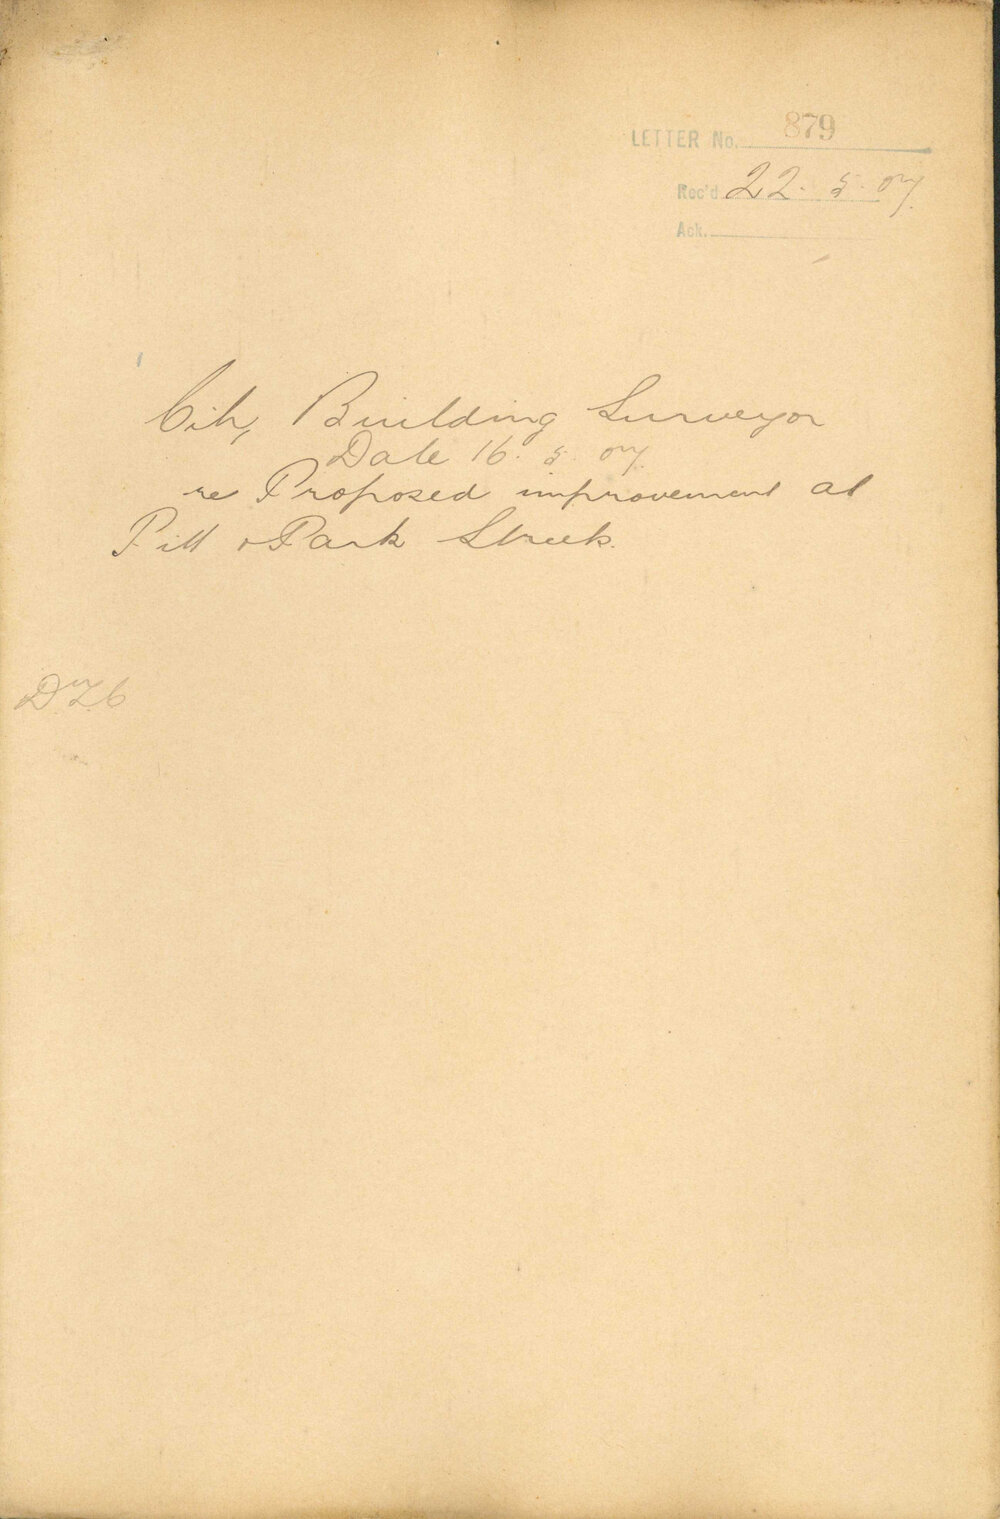 LETTER No. 879
Rec'd 22. 5. 07.
Ack.
City Building Surveyor
Date 16. 5. 07.
re Proposed improvement at
Pitt & Park Streets.